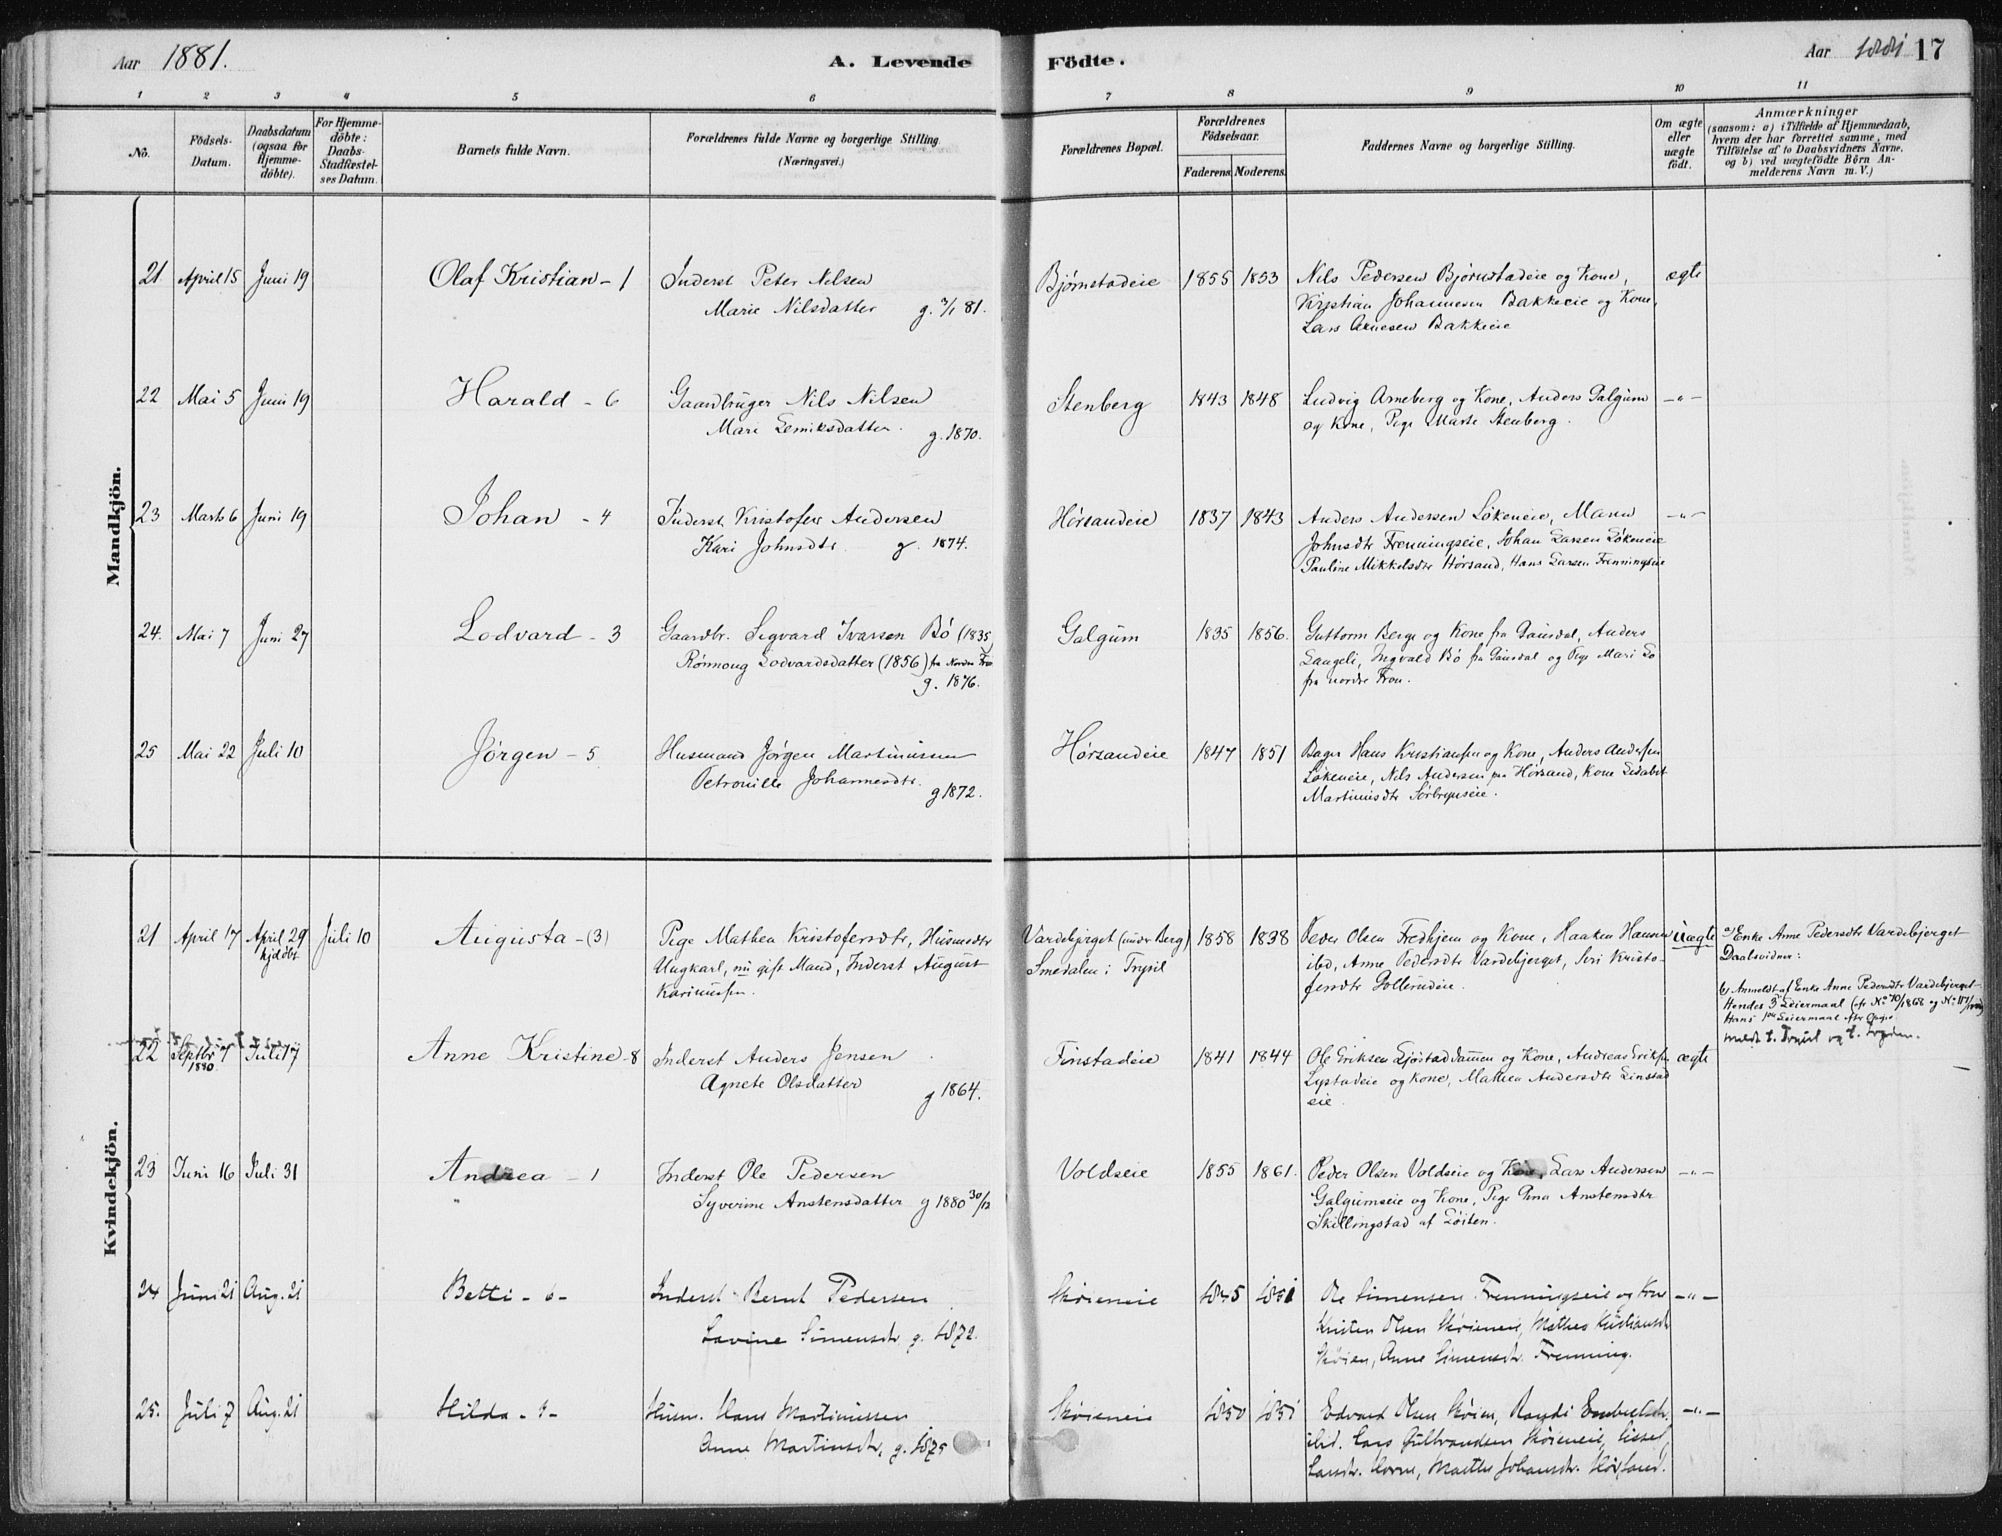 Aar 1881.
A. Levende Födte.
Aar 1881 17
1 2 3 4 5 6 7 8 9 10 11
No.
Födsels-
Datum.
Daabsdatum
(ogsaa for
Hjemme-
döbte).
For Hjemme-
döbte:
Daabs-
Stadfæstel-
ses Datum.
Barnets fulde Navn.
Forældrenes fulde Navne og borgerlige Stilling.
(Næringsvei.)
Forældrenes Bopæl.
Forældrenes
Födselsaar.
Faderens. Moderens.
Faddernes Navne og borgerlige Stilling.
Om ægte
eller
uægte
födt.
Anmærkninger
(saasom: a) i Tilfælde af Hjemmedaab,
hvem der har forrettet samme, med
Tilföielse af to Daabsvidners Navne.
og b) ved uægtefödte Börn An-
melderens Navn m. V.)
Mandkjön.
21 April 15 Juni 19
Olaf Kristian - 1
Inderst Peter Nilsen
Marie Nilsdatter g. 3/1 81.
Bjørnstadeie 1855 1853
Nils Pedersen Bjørnstadeie og Kone,
Kristian Johannesen Bakkeeie og Kone,
Lars Arnesen Bakkeie
ægte
22 Mai 5 Juni 19
Harald - 6
Gaardbruger Nils Nilsen
Mari g. 1870.
Stenberg 1843 1848
Ludvig Arneberg og Kone, Anders Galgum
og Kone, Pige Marte Stenberg.
-"-
23 Marts 6 Juni 19
Johan - 4
Inderst Kristofer Andersen
Kari Johnsdtr. g. 1874.
Hørsandeie 1837 1843
Anders Andersen Lökeneie, Maren
Johnsdtr Frenningseie, Johan Larsen Lökeneie
Pauline Mikkelsdtr Hörsand, Hans Larsen Frenningseie
-"-
24. Mai 7 Juni 27
Lodvard - 3
Gaardbr. Sigvard Ivarsen Bö (1835)
Rönnoug Lodvardsdatter (1856) fra Nordre Fron
g. 1876.
Galgum 1835 1856.
Guttorm Berge og Kone fra Gausdal, Anders
Saugeli, Ingvald Bö fra Gausdal og Pige Mari Lo
fra nordre Fron.
25 Mai 22 Juli 10
Jørgen - 5
Husmand Jørgen Martinussen
Petronille Johannesdtr. g 1872.
Hörsandeie 1847 1851
Bager Hans Kristiansen og Kone, Anders Andersen
Lökeneie, Nils Andersen fra Hörsand, Kone
Martinusdtr Sörbrynseie.
Kvindekjön.
21 April 17 April 29 Juli 10
hjdöbt
Augusta - (3)
Pige Mathea Kristofersdtr, Husmdtr
Ungkarl, nu gift Mand, Inderst August
Karinusen.
Vardebjerget (under Berg) 1858 1838
Smedalen i Trysil
Peder Olsen Fredhjem og Kone, Haaken Hansen
ibd, Anne Pedersdtr Vardebjerget, Siri Kristo-
fersdtr
Uægte
a) Enke Anne Pedersdtr Vardebjerget
Daabsvidner:
b) Anmeldt af Enke Anne Pedersdtr Vardebjerget
Hendes 3die Leiermaal
Hans 1ste Leiermaal
meldt t. Trysil og
22 Septbr 7 Juli 17
1880
Anne Kristine - 8
Inderst Anders Jensen
Agnete Olsdatter g 1864.
Finstadeie 1841 1844
Ole Eriksen og Kone, Andreas Eriksen
Lystadeie og Kone, Mathea Andersdtr Finstad
eie.
ægte
23 Juni 16 Juli 31
Andrea - 1
Inderst Ole Pedersen
Syverine Anstensdatter g 1880 30/12
Voldseie 1855 1861.
Peder Olsen Voldseie og Kone, Lars Andersen
Galgumseie og Kone, Pige Anstensdtr
Skillingstad af Löiten.
-"-
24 Juni 21 Aug. 21
Betti - 6 -
Inderst Bernt Pedersen
Lovine Simensdr. g. 1872.
Skøieneie 1845 1851
Ole Simensen Frenningseie og Kone
Kristen Olsen Skøieneie, Mathea Kristiansdr
Skøien, Anne Simensdr. Frenning.
-"-
25. Juli 7 Aug. 21
Hilda -
Husm. Hans Martinussen
Anne Martinsdr, g. 1875
Skøieneie 1850 1851
Edvard Olsen Skøien, Randi Embretsdr.
ibd. Lars Gulbrandsen Skøieneie, Sissel
Larsdr. Marthe Johansdr. Hørsand.
-"-